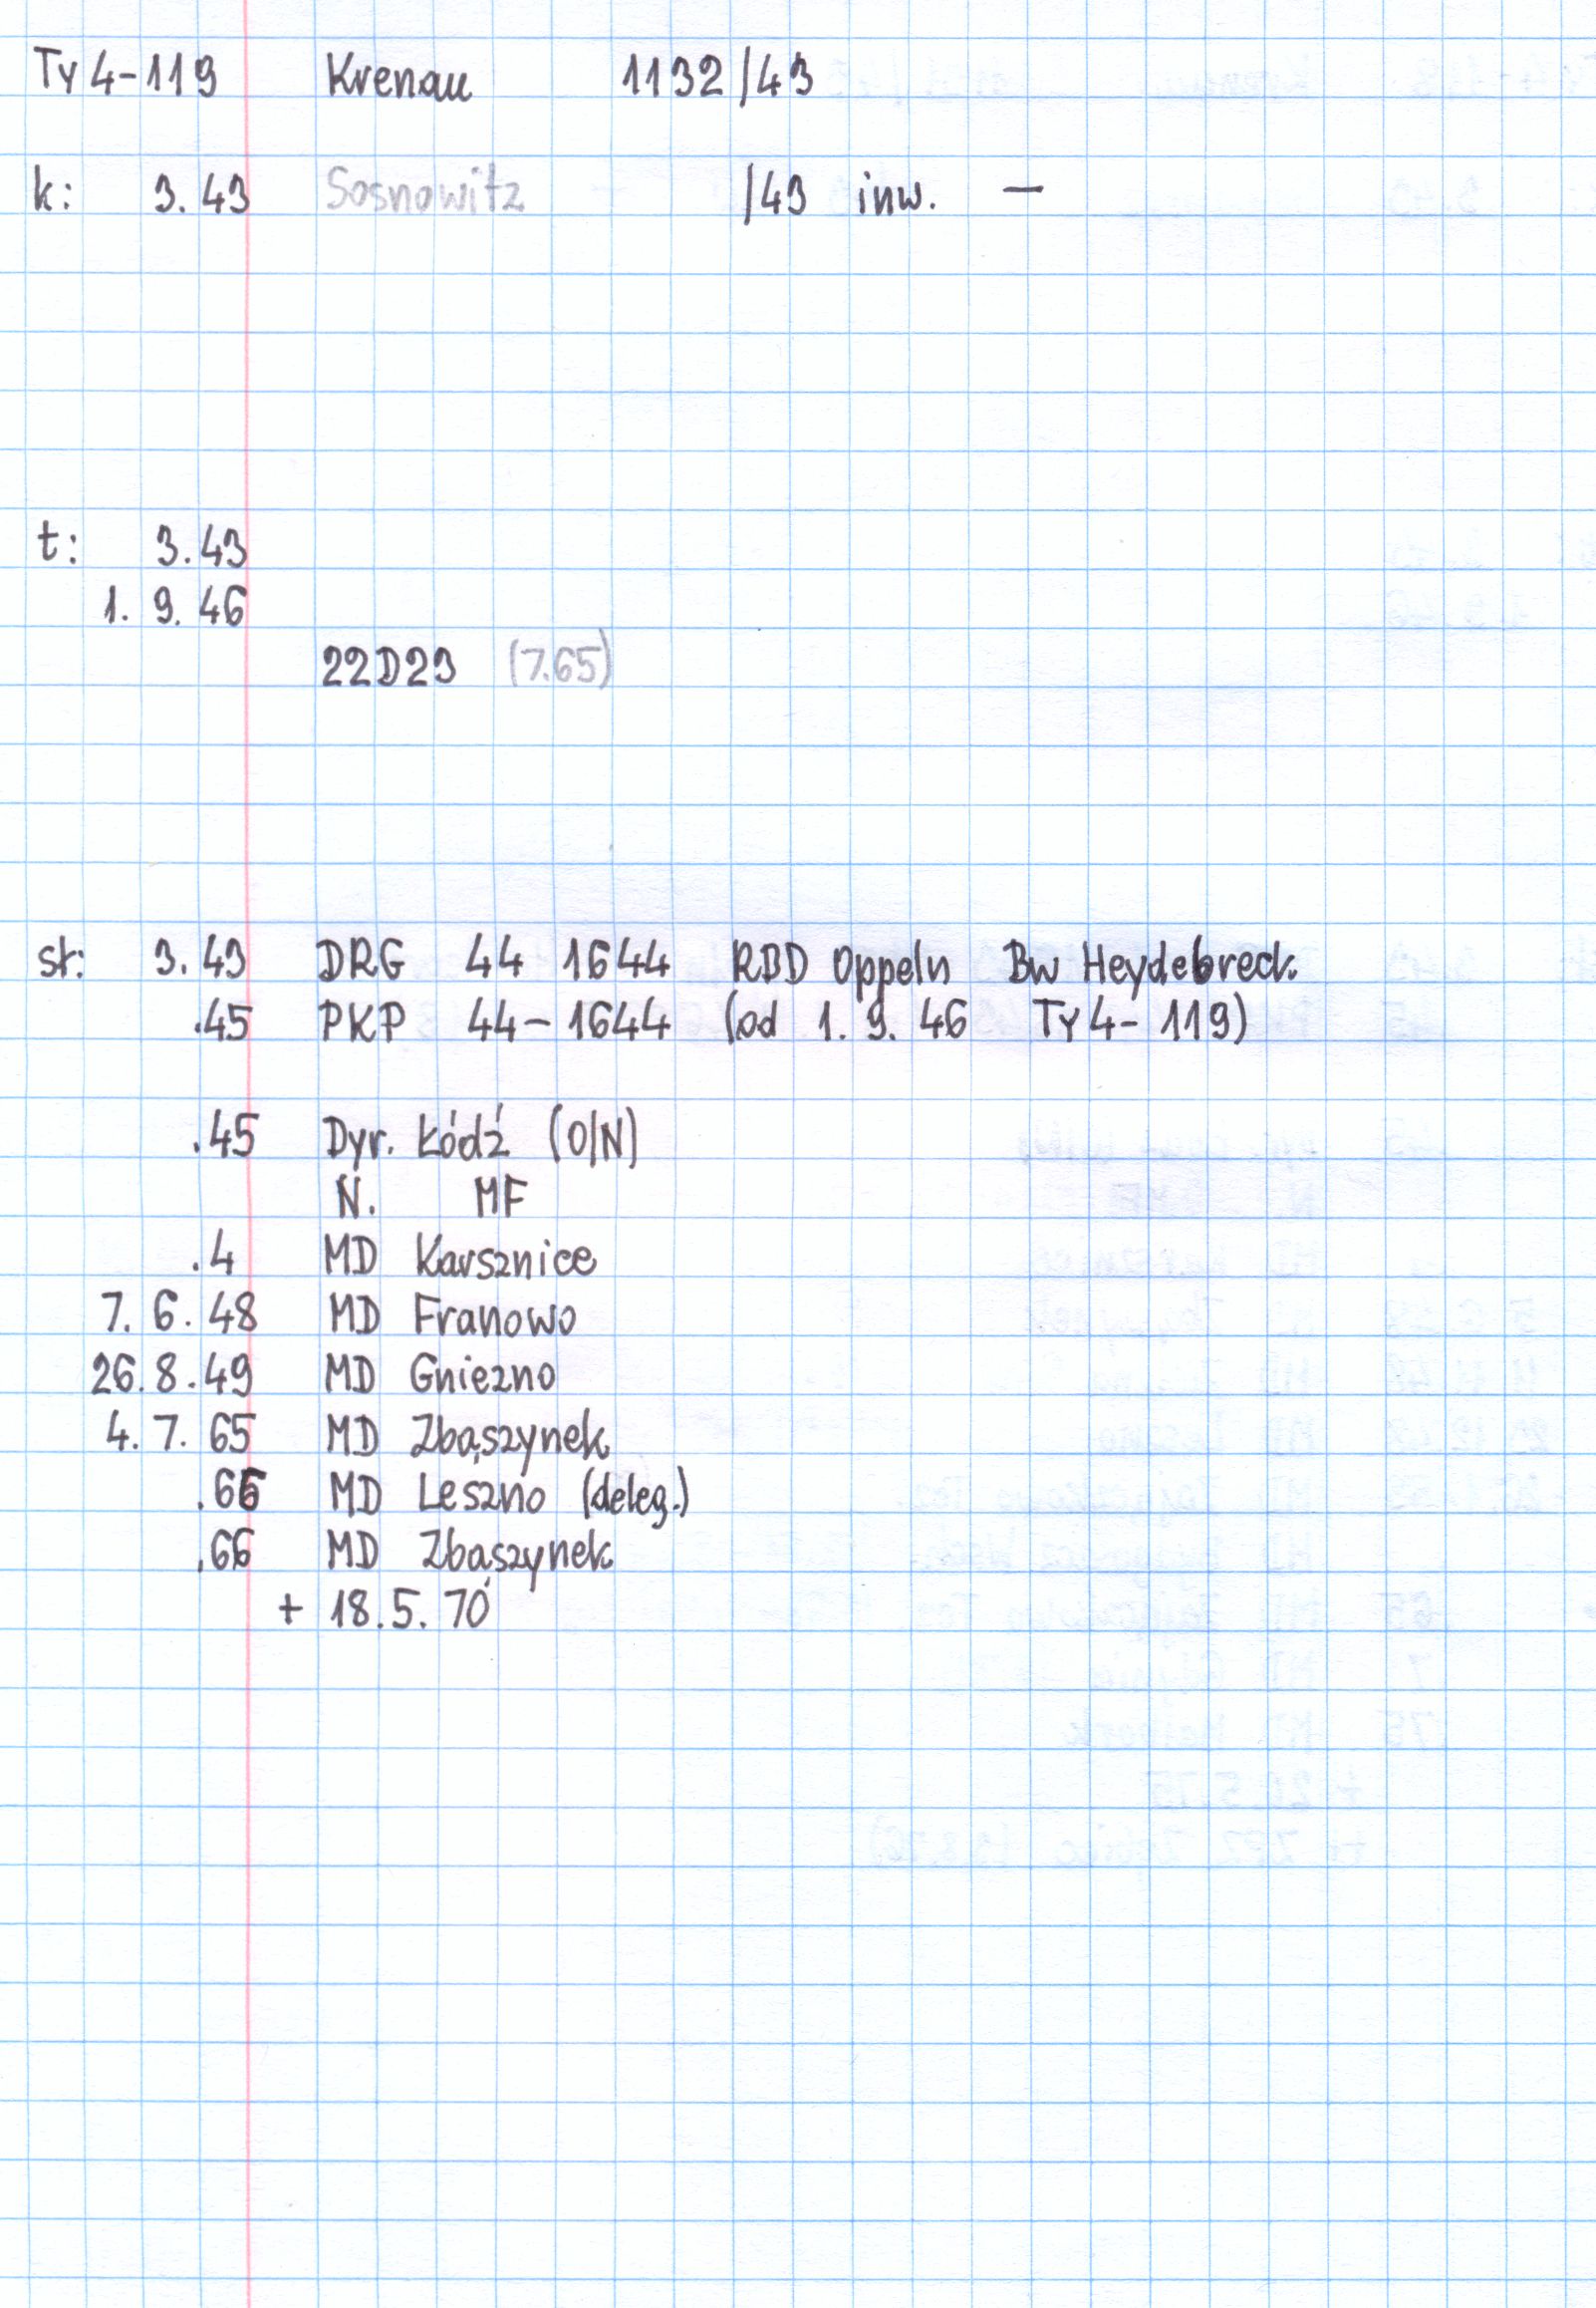 Ty4-119 Krenau 1132/43
k: 3.43 Sosnowitz /43 inw. —
t: 3.43
1. 9. 46
22D23 (7.65)
st: 3.43 DRG 44 1644 RBD Oppeln Bw Heydebreck
.45 PKP 44-1644 (od 1. 9. 46 Ty4-119)
.45 Dyr. Łódź (O/N)
N. MF
.4 MD Karsznice
7. 6. 48 MD Franowo
26. 8. 49 MD Gniezno
4. 7. 65 MD Zbąszynek
.66 MD Leszno (deleg.)
.66 MD Zbąszynek
+ 18.5.70